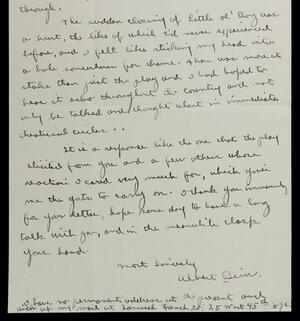 through.
The sudden closing of Little Ol' Boy was
a hurt, the like of which I'd never experienced
before, and I felt like sticking my head into
a hole somewhere for shame. There was more at
stake than just the play and I had hoped to
hear it echo throughout the country and not
only be talked and thought about in immediate
theatrical circles . .
It is a response like the one that the play
elicited from you and a few others whose
reactions I cared very much for, which gives
me the guts to carry on. I thank you immensely
for your letter, hope some day to have a long
talk with you, and in the meanwhile clasp
your hand.
most sincerely
Albert Bein.
I have no permanent address at the present and
my mail at Samuel French Co, 25 West 45th